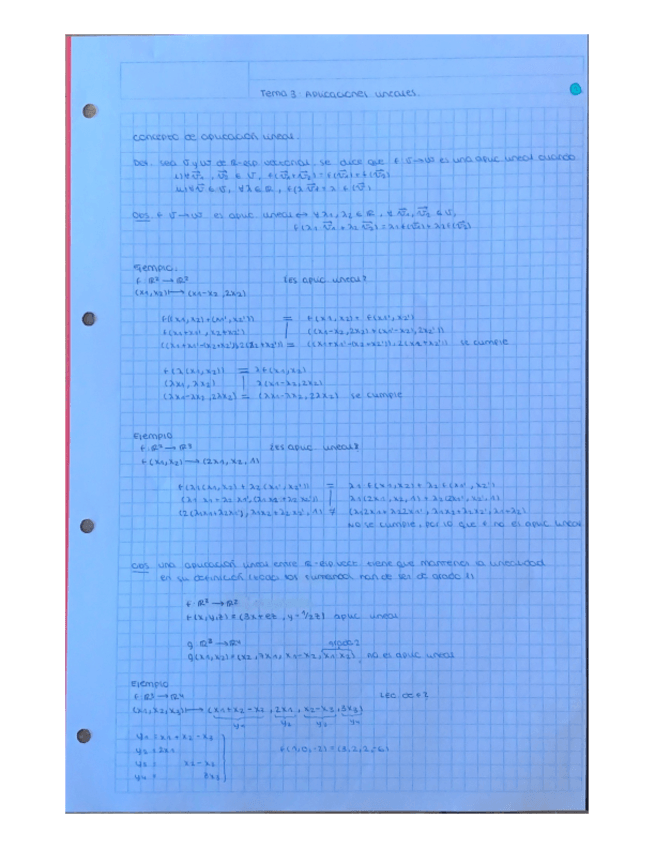 Tema 3: Aplicaciones lineales.
Concepto de aplicación lineal.
Def. Sea V y W de R-esp vectorial, se dice que f: V→W es una aplic lineal cuando
i) ∀ v1, v2 ∈ V, f(v1+v2) = f(v1) + f(v2)
ii) ∀ v ∈ V, ∀λ ∈ R, f(λ v) = λ f(v)
Obs f: V→W es aplic. lineal ↔ ∀ λ1, λ2 ∈ R, ∀ v1, v2 ∈ V,
f(λ1 v1 + λ2 v2) = λ1 f(v1) + λ2 f(v2)
Ejemplo.
f: R² → R² ¿es aplic lineal?
(x1, x2) ⟼ (x1-x2, 2x2)
f((x1, x2) + (x1', x2')) = f(x1, x2) + f(x1', x2')
f(x1+x1', x2+x2') | ((x1-x2, 2x2) + (x1'-x2', 2x2'))
((x1+x1'-(x2+x2')), 2(x2+x2')) = ((x1+x1'-(x2+x2')), 2(x2+x2')) se cumple
f(λ(x1, x2)) = λ f(x1, x2)
(λx1, λx2) | λ(x1-x2, 2x2)
(λx1-λx2, 2λx2) = (λx1-λx2, 2λx2) se cumple
Ejemplo
f: R² → R³ ¿es aplic. lineal?
f(x1, x2) → (2x1, x2, 1)
f(λ1(x1, x2) + λ2(x1', x2')) = λ1 f(x1, x2) + λ2 f(x1', x2')
(λ1 x1 + λ2 x1', λ1 x2 + λ2 x2') | λ1(2x1, x2, 1) + λ2(2x1', x2', 1)
(2(λ1x1+λ2x1'), λ1x2+λ2x2', 1) ≠
No se cumple, por lo que f no es aplic lineal
Obs una aplicación lineal entre R-esp vect tiene que mantener la linealidad
en su definición (todos los sumandos han de ser de grado 1)
f: R³ → R²
f(x,y,z) = (3x+ez, y-1/2z) aplic lineal
g: R² → R⁴ grado 2
g(x1, x2) = (x2, 7x1, x1-x2, x1 x2), no es aplic lineal
Ejemplo
f: R³ → R⁴
(x1, x2, x3) ⟼ (x1+x2-x3, 2x1, x2-x3, 3x3)
y1 y2 y3 y4
y1 = x1+x2-x3
y2 = 2x1
y3 = x2-x3
y4 = 3x3